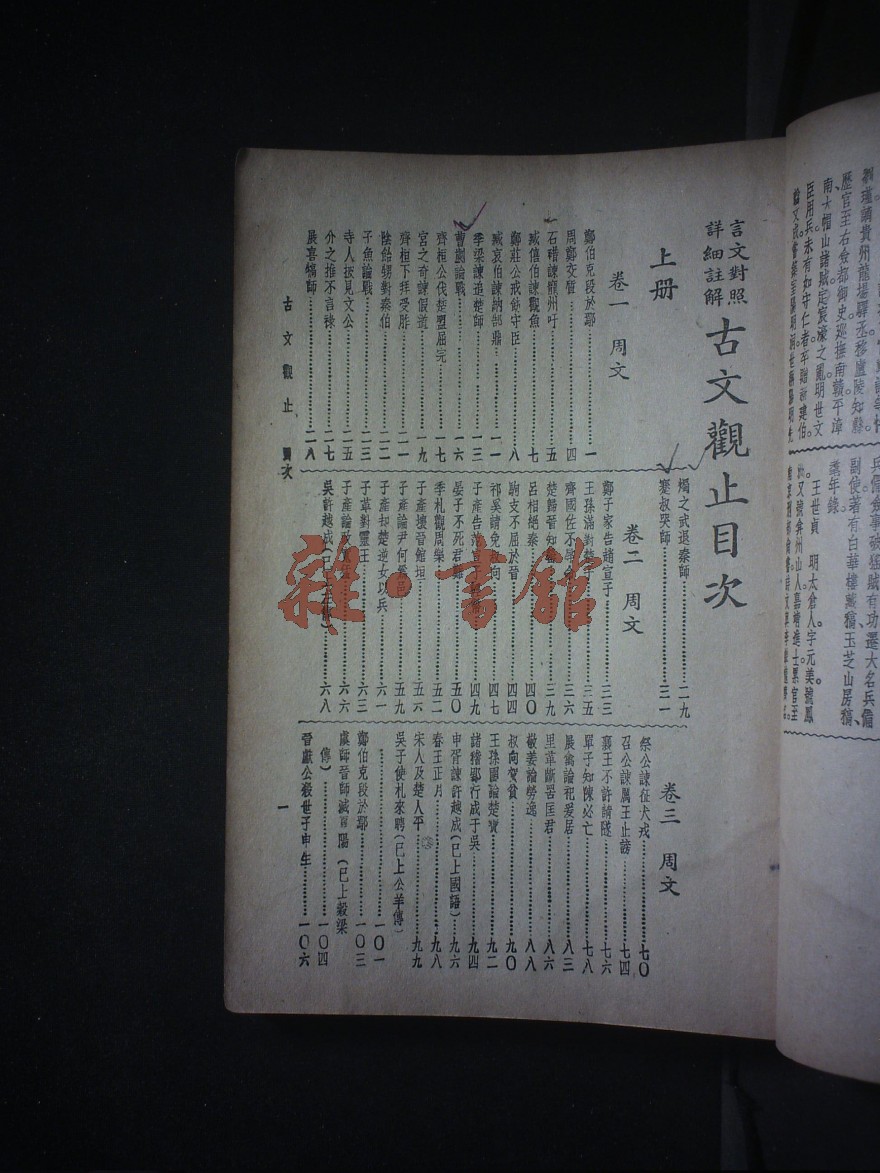 言文對照
詳細註解
古文觀止目次
上册
卷一 周文
鄭伯克段於鄢 一
周鄭交質 四
石碏諫寵州吁 五
臧僖伯諫觀魚 七
鄭莊公戒飭守臣 八
臧哀伯諫納郜鼎 一一
季梁諫追楚師 一三
曹劌論戰 一六
齊桓公伐楚盟屈完 一七
宮之奇諫假道 一九
齊桓下拜受胙 二一
陰飴甥對秦伯 二二
子魚論戰 二三
寺人披見文公 二五
介之推不言祿 二七
展喜犒師 二八
燭之武退秦師 二九
蹇叔哭師 三一
卷二 周文
鄭子家告趙宣子 三三
王孫滿對楚子 三五
齊國佐不辱 三六
楚歸晉知罃 三九
呂相絕秦 四〇
駒支不屈於晉 四四
祁奚請免叔向 四七
子產告范宣子 四九
晏子不死君難 五〇
季札觀周樂 五二
子產壞晉館垣 五六
子產論尹何爲邑 五九
子產却楚逆女以兵 六一
子革對靈王 六三
子產論政寬猛 六六
吳許越成(已上左傳) 六八
卷三 周文
祭公諫征犬戎 七〇
召公諫厲王止謗 七四
襄王不許請隧 七六
單子知陳必亡 七八
展禽論祀爰居 八三
里革斷罟匡君 八六
敬姜論勞逸 八八
叔向賀貧 九〇
王孫圉論楚寶 九二
諸稽郢行成于吳 九四
申胥諫許越成(已上國語) 九六
春王正月 九八
宋人及楚人平 九九
吳子使札來聘(已上公羊傳)
一〇一
鄭伯克段於鄢 一〇三
虞師晉師滅夏陽(已上穀梁
傳) 一〇四
晉獻公殺世子申生 一〇六
古文觀止 目次
一
雜·書館
王世貞 明太倉人字元美號鳳